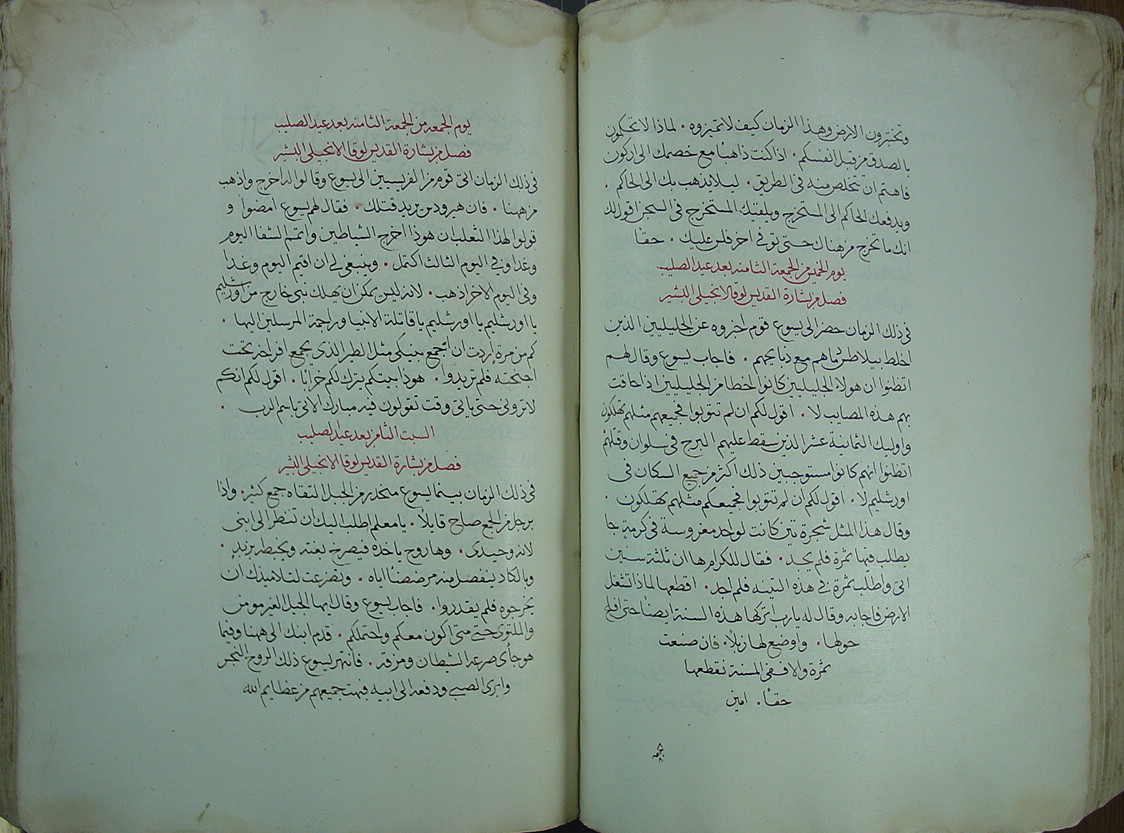 وتختبرون الارض وهذا الزمان كيف لا تميزوه . لماذا لا تحكمون
بالصدق من قبل انفسكم . اذا كنت ذاهبا مع خصمك الى اركون
فاهتم ان تخلص منه في الطريق . ليلا يذهب بك الى الحاكم .
ويدفعك الحاكم الى المستخرج ويلقيك المستخرج في السجن اقول لك
انك ما تخرج من هناك حتى توفي اخر فلس عليك . حقا
يوم الخميس من الجمعة الثامنه بعد عيد الصليب
فصل من بشارة القديس لوقا الانجيلي البشير
في ذلك الزمان حضر الى يسوع قوم اخبروه عن الجليليين الذين
اخلط بيلاطس دماهم مع ذبايحهم . فاجاب يسوع وقال لهم
اتظنوا ان هولاء الجليليين كانوا اخطا من الجليليين اذا حاقت
بهم هذه المصايب لا . اقول لكم ان لم تتوبوا فجميعهم مثلهم تهلكون
واوليك الثمانية عشر الذين سقط عليهم البرج في سلوان وقتلهم
اتظنوا انهم كانوا مستوجبين ذلك اكثر من جميع السكان في
اورشليم لا . اقول لكم ان لم تتوبوا فجميعكم مثلهم تهلكون .
وقال هذا المثل شجرة تين كانت لواحد مغروسة في كرمة جا
يطلب فيها ثمرة فلم يجد . فقال للكرام ها ان ثلثة سنين
اتي واطلب ثمرة في هذه التينه فلم اجد . اقطعها لماذا تشغل
الارض فاجابه وقال له يا رب اتركها هذه السنة ايضا حتى افلح
حولها . واوضع لها زبلا . فان صنعت
ثمرة والا ففي المسنة نقطعها
حقا . امين
يوم الجمعه من الجمعة الثامنه بعد عيد الصليب
فصل من بشارة القديس لوقا الانجيلي البشير
في ذلك الزمان اتى قوم من الفريسيين الى يسوع وقالوا له اخرج واذهب
من ههنا . فان هيرودس يريد قتلك . فقال لهم يسوع امضوا و
قولوا لهذا الثعلبان هوذا اخرج الشياطين واتمم الشفا اليوم
وغدا وفي اليوم الثالث اكتمل . وينبغي لي ان اقيم اليوم وغدا
وفي اليوم الاخر اذهب . لانه ليس يمكن ان يهلك نبي خارج من اورشليم
يا اورشليم يا اورشليم يا قاتلة الانبيا وراجمة المرسلين اليها .
كم من مرة اردت ان اجمع بنيكي مثل الطير الذي يجمع افراخه تحت
اجنحته فلم تريدوا . هوذا بيتكم يترك لكم خرابا . اقول لكم انكم
لا تروني حتى ياتي وقت تقولون فيه مبارك الاتي باسم الرب .
السبت الثامن بعد عيد الصليب
فصل من بشارة القديس لوقا الانجيلي البشير
في ذلك الزمان بينما يسوع منحدر من الجبل التقاه جمع كثير . واذا
برجل من الجمع صلح قايلا . يا معلم اطلب اليك ان تنظر الى ابني
لانه وحيدي . وها روح ياخذه فيصرخ بغته ويخبطه بزبد .
وبالكاد ينفصل منه مرضضا اياه . وتضرعت لتلاميذك ان
يخرجوه فلم يقدروا . فاجاب يسوع وقال ايها الجبل الغير مومن
والملتوي حتى متى اكون معكم واحتملكم . قدم ابنك الى ههنا وفيما
هو جاى صرعه الشيطان ومزقه . فانتهر يسوع ذلك الروح النجس
وابرى الصبي ودفعه الى ابيه فبهت جميعهم من عظايم الله